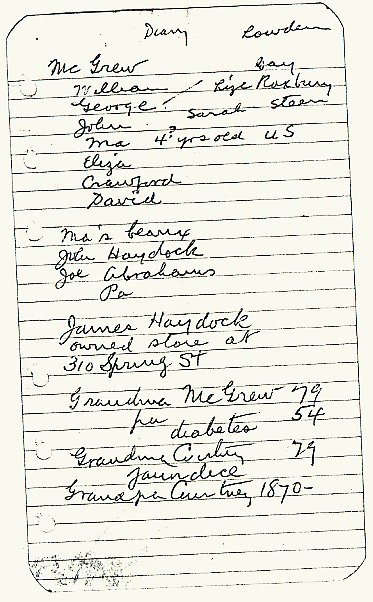 Diary Lowden
Mc Grew Gay
William / Lize Roxbury
George - Sarah Steen
John
Ma 4? yrs old US
Eliza
Crawford
David
Ma's beaux
John Haydock
Joe Abrahams
Pa
James Haydock
owned store at
310 Spring St
Grandma McGrew 79
pa 54
diabetes
Grandma Curtney 79
jaundice
Grandpa Courtney 1870-